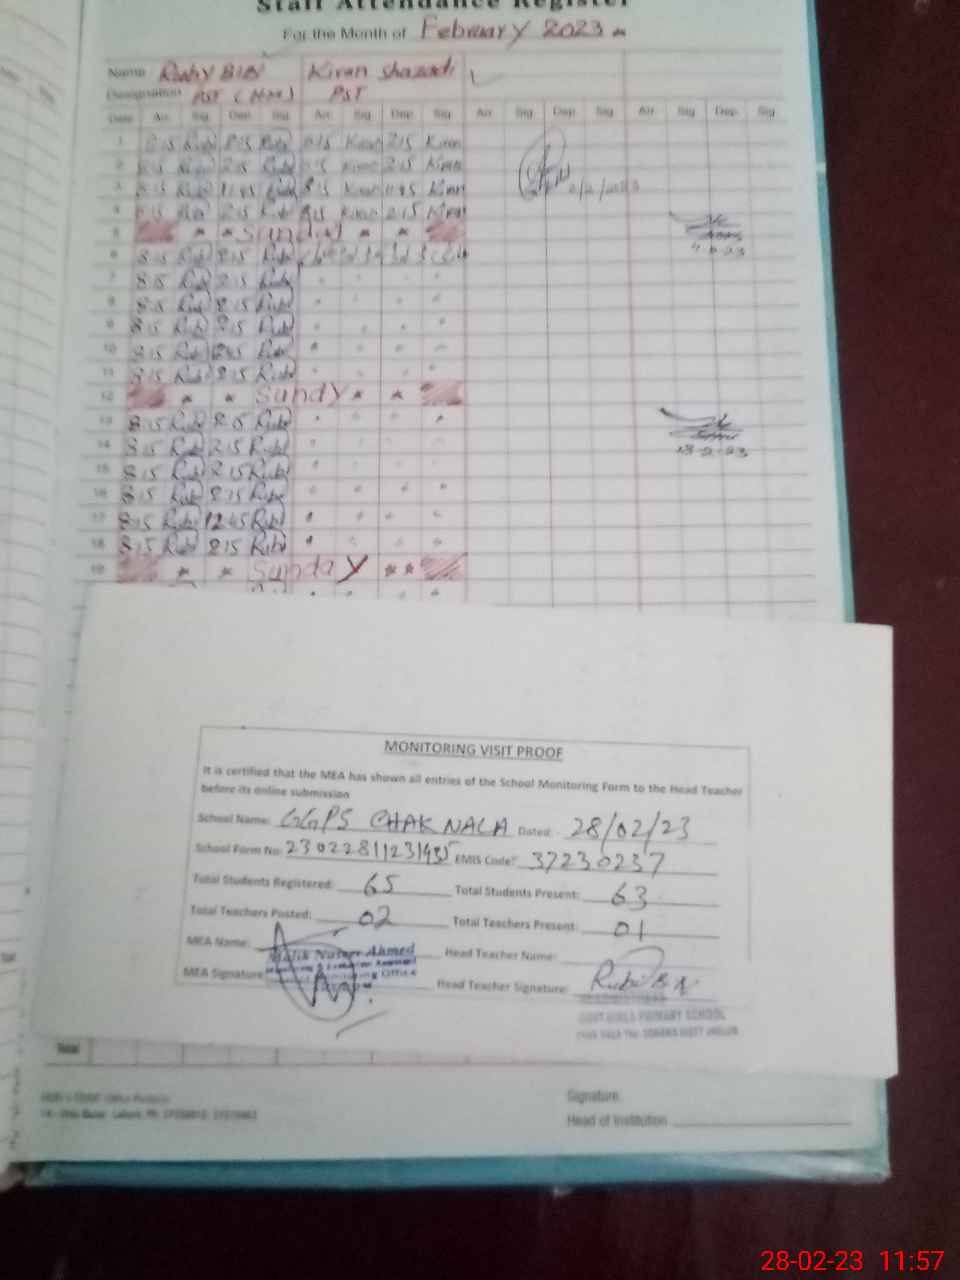 Staff Attendance Register
For the Month of February 2023
Name Ruby BIBI Kiran Shazadi
Designation PST PST
Date Arr. Sig. Dep. Sig. Arr. Sig. Dep. Sig. Arr. Sig. Dep. Sig. Arr. Sig. Dep. Sig.
1 8:15 Rubi 2:15 Rubi 8:15 Kiran 2:15 Kiran
2 8:15 Rubi 2:15 Rubi 8:15 Kiran 2:15 Kiran
3 8:15 Rubi 11:45 Rubi 8:15 Kiran 11:45 Kiran
4 8:15 Rubi 2:15 Rubi 8:15 Kiran 2:15 Kiran
5 Sunday
6 8:15 Rubi 2:15 Rubi
7 8:15 Rubi 2:15 Rubi
8 8:15 Rubi 2:15 Rubi
9 8:15 Rubi 2:15 Rubi
10 8:15 Rubi 12:45 Rubi
11 8:15 Rubi 2:15 Rubi
12 Sundy
13 8:15 Rubi 2:15 Rubi
14 8:15 Rubi 2:15 Rubi
15 8:15 Rubi 2:15 Rubi
16 8:15 Rubi 2:15 Rubi
17 8:15 Rubi 12:45 Rubi
18 8:15 Rubi 2:15 Rubi
19 Sunday
MONITORING VISIT PROOF
It is certified that the MEA has shown all entries of the School Monitoring Form to the Head Teacher
before its online submission
School Name: GGPS CHAK NALA Dated: 28/02/23
School Form No: EMIS Code: 37230237
Total Students Registered: 65 Total Students Present: 63
Total Teachers Posted: 02 Total Teachers Present: 01
MEA Name: Malik Nuseer Ahmed Head Teacher Name:
MEA Signature: Head Teacher Signature: Rubi Bibi
GOVT GIRLS PRIMARY SCHOOL
Total
Signature
Head of Institution
28-02-23 11:57